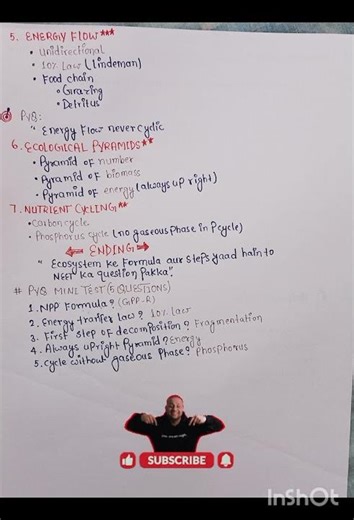 5. ENERGY FLOW***
• Unidirectional
• 10% Law (Lindeman)
• Food chain
• Grazing
• Detritus
PYQ:
" Energy Flow never cyclic
6. ECOLOGICAL PYRAMIDS**
• Pyramid of number
• Pyramid of biomass
• Pyramid of energy (always up right)
7. NUTRIENT CYCLING**
• Carbon cycle
• Phosphorus cycle (no gaseous Phase in P cycle)
ENDING
" Ecosystem ke Formula aur steps yaad hain to
NEET ka question Pakka".
# PYQ MINI TEST (5 QUESTIONS)
1. NPP Formula? (GPP-R)
2. Energy tranfer law? 10% law
3. First step of decomposition? Fragmentation
4. Always upright Pyramid? Energy
5. Cycle without gaseous Phase? Phosphorus
SUBSCRIBE
InShOt